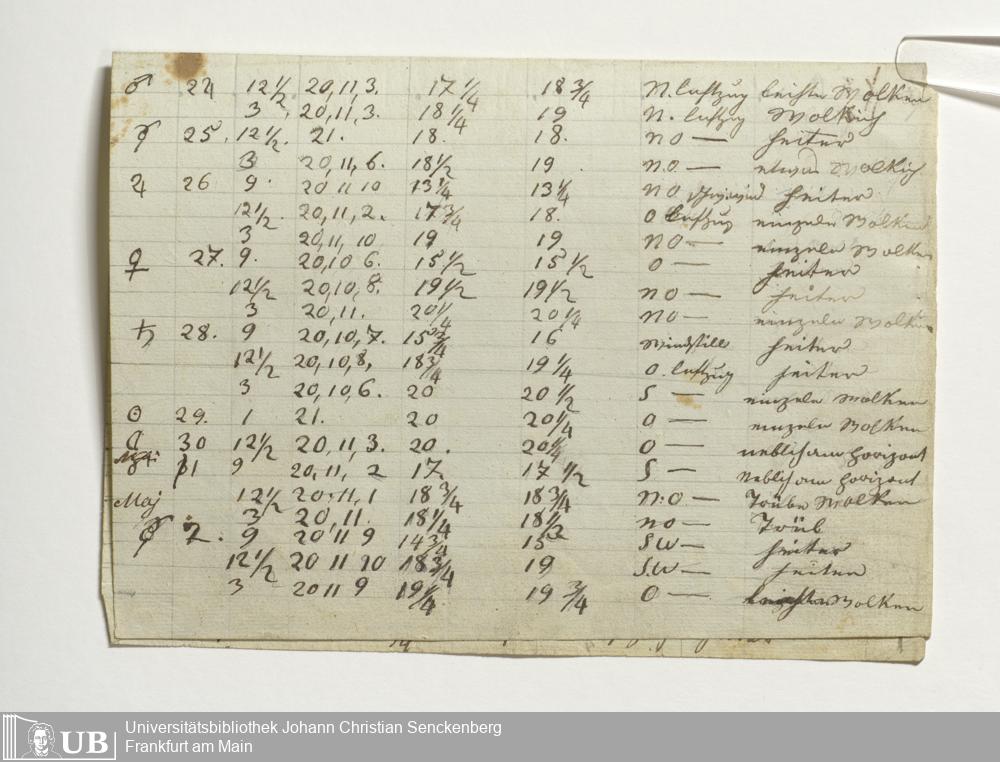 ♂ 24 12 1/2 20,11,3. 17 1/4 18 3/4 N. luftzug leichte Wolken
3 20,11,3. 18 1/4 19 N. luftzug Wolkich
☿ 25. 12 1/2. 21. 18. 18. NO — heiter
3 20,11,6. 18 1/2 19 NO — etwas Wolkich
♃ 26 9. 20 11 10 13 1/4 13 1/4 NO heiter
12 1/2. 20,11,2. 17 3/4 18. O luftzug einzeln Wolken
3 20,11,10 19 19 NO — einzeln Wolken
♀ 27. 9. 20,10 6. 15 1/2 15 1/2 O — heiter
12 1/2 20,10,8. 19 1/2 19 1/2 NO — heiter
3 20,11. 20 1/4 20 1/4 NO — einzeln Wolken
♄ 28. 9 20,10,7. 15 3/4 16 Windstill heiter
12 1/2 20,10,8, 18 3/4 19 1/4 O. luftzug heiter
3 20,10,6. 20 20 1/2 S — einzeln Wolken
☉ 29. 1 21. 20 20 1/4 O — einzeln Wolken
☾ 30 12 1/2 20,11,3. 20. 20 1/4 O — neblich am Horizont
♂ 1 9 20,11, 2 17. 17 1/2 S — Neblich am Horizont
Maj 12 1/2 20,11,1 18 3/4 18 3/4 N:O — Trübe Wolken
3 20,11. 18 1/4 18 1/2 NO — Trüb
☿ 2. 9 20 11 9 14 3/4 15 SW — heiter
12 1/2 20 11 10 18 3/4 19 S.W — heiter
3 20 11 9 19 1/4 19 3/4 O — Wolken
UB
Universitätsbibliothek Johann Christian Senckenberg
Frankfurt am Main